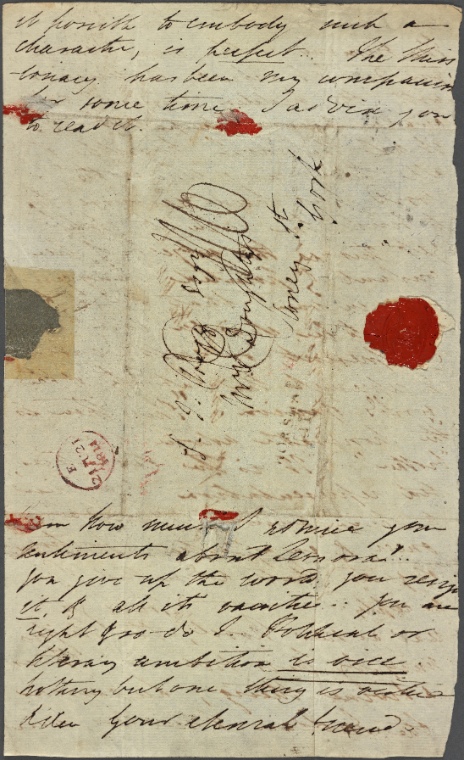 it possible to embody such a
character, is perfect. The Miss
ionary has been my companion
for some time I advise you
to read it.
T. J. Hogg Esqr
Mrs
St
York
E
21
1811
how much I admire your
sentiments about Leonora...
you give up the world you resign
it & all its vanities.. you are
right & so do I. Political or
literary ambition is over.
nothing but one thing is
Your friend.